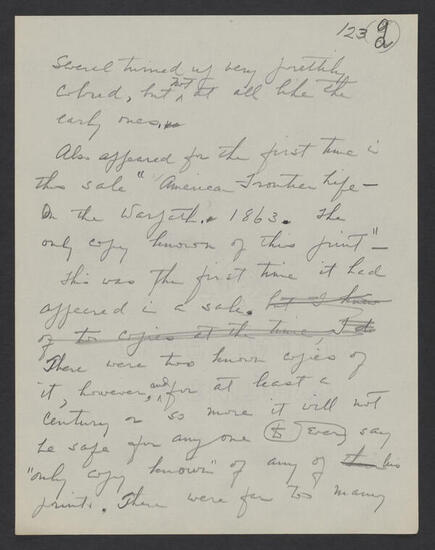 123 a
a
Several turned up very prettily
colored, but not at all like the
early ones.
Also appeared for the first time in
this sale "American Frontier Life –
On the Warpath. 1863. The
only copy known of this print" –
This was the first time it had
appeared in a sale. but I knew
of two copies at the time, I do
There were two known copies of
it, however, and for at least a
century or so more it will not
be safe for any one to ever say
"only copy known" of any of this his
prints. There were far too many